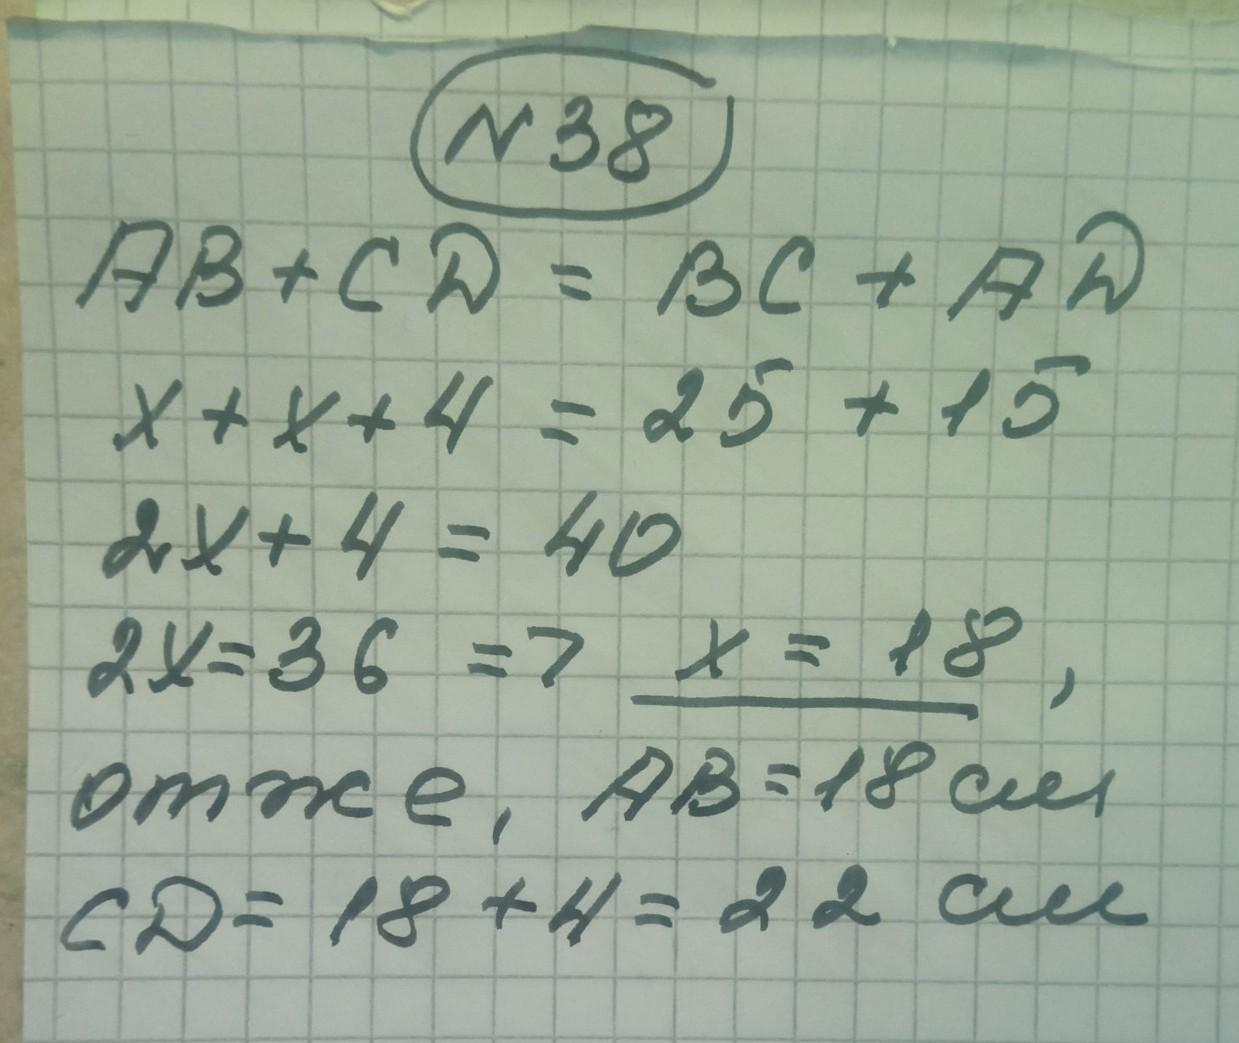 N 38
AB + CD = BC + AD
x + x + 4 = 25 + 15
2x + 4 = 40
2x = 36 => x = 18,
отже, AB = 18 см
CD = 18 + 4 = 22 см